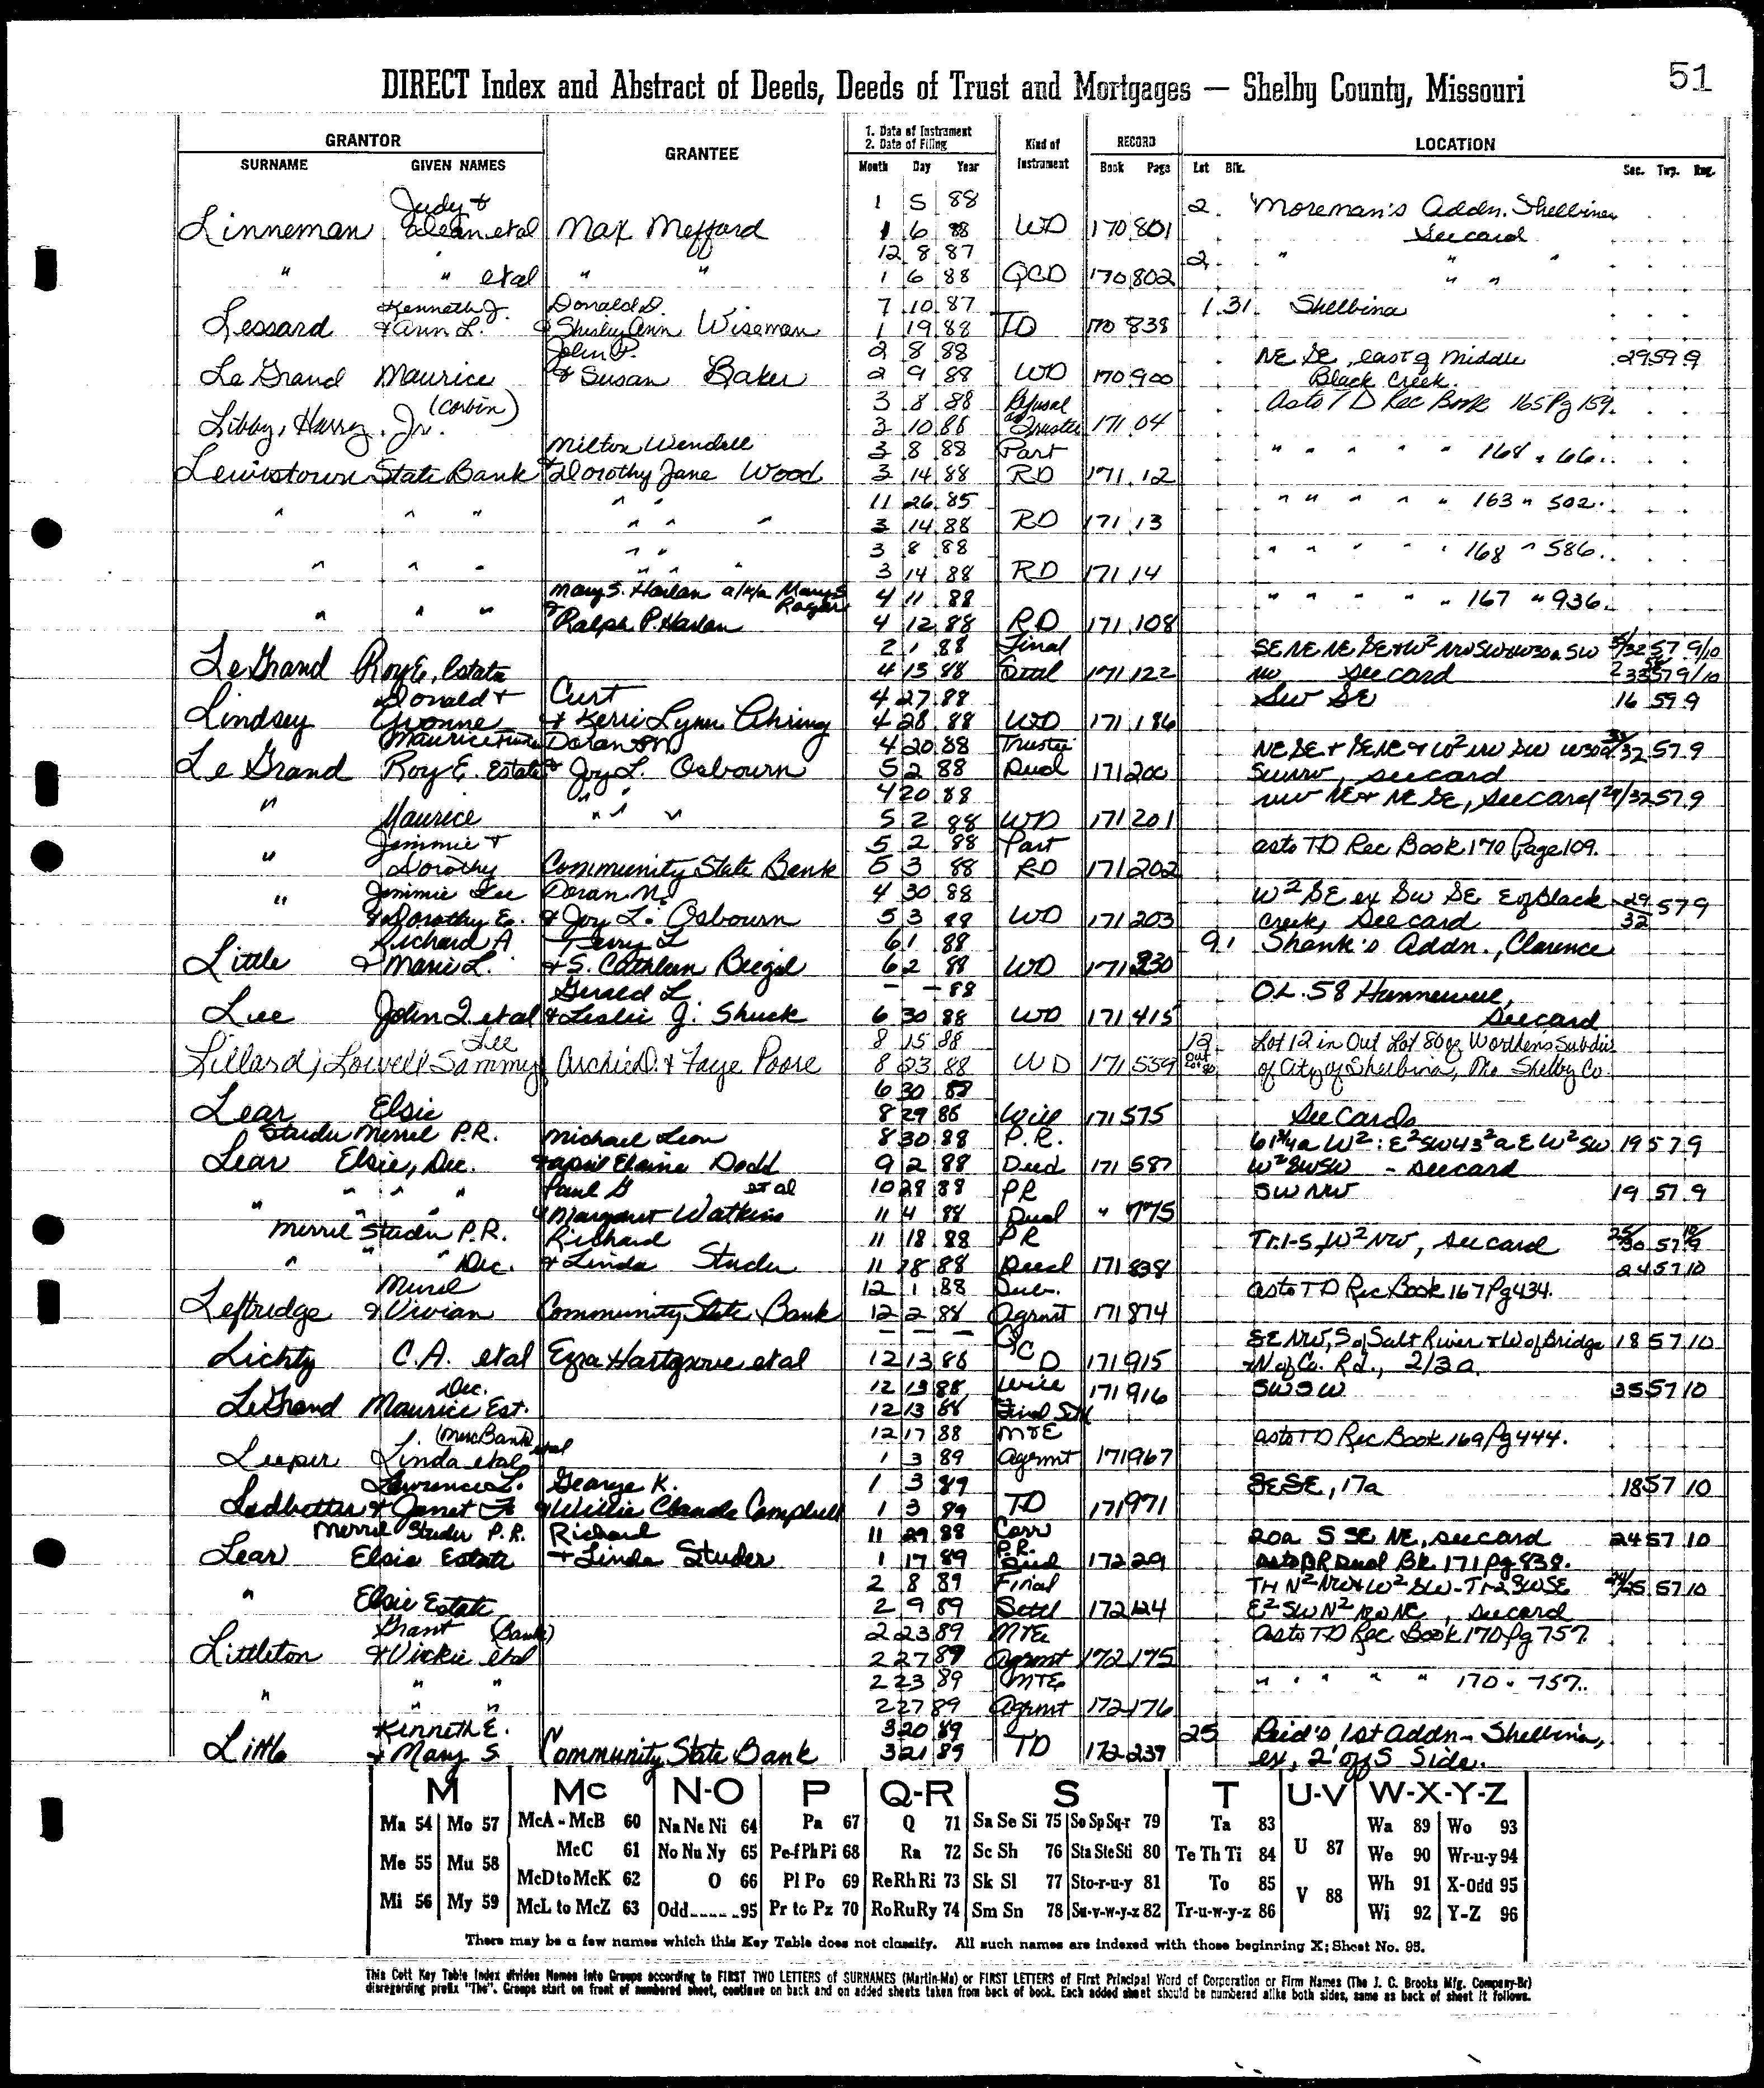 51
DIRECT Index and Abstract of Deeds, Deeds of Trust and Mortgages — Shelby County, Missouri
GRANTOR GRANTEE 1. Date of Instrument 2. Date of Filing Kind of Instrument RECORD LOCATION
SURNAME GIVEN NAMES Month Day Year Book Page Lot Blk. Sec. Twp. Rng.
Judy + 1 5 88 2. Moreman's Addn. Shelbina
Linneman et al Max Mefford 1 6 88 WD 170 801 See card
12 8 87 2 " " "
" " et al " " 1 6 88 QCD 170 802 " "
Kenneth J. Donald D. 7 10 87 1 31 Shelbina
Lessard & Ann L. & Shirley Ann Wiseman 1 19 88 TD 170 838
John P. 2 8 88 NE SE, east of Middle 29 59 9
LeGrand Maurice & Susan Baker 2 9 88 WD 170 900 Black Creek.
(Corbin) 3 8 88 Refusal as to TD Rec Book 165 Pg 159.
Libby, Harry, Jr. 3 10 88 Trustee 171 04
Milton Wendell 3 8 88 Part " " " " " 168 " 66.
Lewistown State Bank & Dorothy Jane Wood 3 14 88 RD 171 12
" " 11 26 85 " " " " " 163 " 502.
" " " " " " 3 14 88 RD 171 13
" " 3 8 88 " " " " " 168 " 586.
" " " " " " 3 14 88 RD 171 14
Mary S. Harlan a/k/a Mary S 4 11 88 " " " " " 167 " 936.
" " " & Ralph P. Harlan 4 12 88 RD 171 108
2 1 88 Final SE NE NE SE + W² NW SW + W30a SW 57 9/10
LeGrand Roy E. Estate 4 13 88 171 122 NW See card
Donald + Curt 4 27 88 SW SE 16 59 9
Lindsey Yvonne & Kerri Lynn Ahring 4 28 88 WD 171 186
Maurice Doran N 4 20 88 Trustee NE SE + SE NE + W² NW SW W30a 32 57 9
LeGrand Roy E. Estate & Joy L. Osbourn 5 2 88 Deed 171 200 see card
4 20 88 NW NE + NE SE, see card 29/32 57 9
" Maurice " " " 5 2 88 WD 171 201
Jimmie + 5 2 88 Part as to TD Rec Book 170 Page 109.
" Dorothy Community State Bank 5 3 88 RD 171 202
" Jimmie Lee Doran N. 4 30 88 W² SE ex SW SE E of Black 29 57 9
& Dorothy E. & Joy L. Osbourn 5 3 88 WD 171 203 Creek, See card 32
Richard A Terry L 6 1 88 9 1 Shank's Addn., Clarence
Little & Marie L. & S. Cathleen Beigel 6 2 88 WD 171 330
Gerald L — — 88 OL. 58 Hunnewell,
Lee John Q. et al & Leslie J. Shuck 6 30 88 WD 171 415 See card
Lee 8 15 88 12 Lot 12 in Out Lot 80 of Worthens Subdiv
Lillard, Lowell Sammy Archie D. & Faye Poore 8 23 88 WD 171 559 Out Lot 80 of City of Shelbina, Mo Shelby Co
6 30 88
Lear Elsie 8 29 88 Will 171 575 See Cards
Studer Merrel P.R. Michael Leon 8 30 88 P.R. 61¾a W²: E² SW 43²a E W² SW 19 57 9
Lear Elsie, Dec. & April Elaine Dodd 9 2 88 Deed 171 587 W² SW SW - see card
" " " Paul G et al 10 28 88 PR SW NW 19 57 9
" " & Margaret Watkins 11 4 88 Deed " 775
Merril Studer P.R. Richard 11 18 88 PR Tr. 1-5, W² NW, see card 57 9
" " " Dec. & Linda Studer 11 28 88 Deed 171 838 24 57 10
Merrel 12 1 88 as to TD Rec Book 167 Pg 434.
Leftridge & Vivian Community State Bank 12 2 88 Agrmt 171 874
— — — SE NW, S of Salt River + W of Bridge 18 57 10
Lichty C.A. et al Ezra Hartgrove et al 12 13 88 QCD 171 915 + N of Co. Rd., 2/3 a.
Dec. 12 13 88 Will 171 916 SW SW 35 57 10
LeGrand Maurice Est. 12 13 88 Final Sett
(Merc Bank) 12 17 88 MTE as to TD Rec Book 169 Pg 444.
Leeper Linda et al 1 3 89 Agrmt 171 967
Lawrence L. George K. 1 3 89 SE SE, 17a 18 57 10
Ledbetter & Janet & Willie Claude Campbell 1 3 89 TD 171 971
Merril Studer P.R. Richard 11 29 88 Corr 20a S SE NE, see card 24 57 10
Lear Elsie Estate & Linda Studer 1 17 89 P.R. Deed 172 29 as to P.R. Deed Bk 171 Pg 838.
" 2 8 89 Final Tr 1 N² NW + W² SW - Tr 2 SW SE 24/25 57 10
Elsie Estate 2 9 89 Settl 172 124 E² SW N² NW NE, see card
Grant (Bank) 2 23 89 MTE as to TD Rec Book 170 Pg 757.
Littleton & Vickie et al 2 27 89 Agrmt 172 175
" " " 2 23 89 MTE " " " " " 170 " 757.
" " 2 27 89 Agrmt 172 176
Kenneth E. 3 20 89 25 Reid's 1st Addn - Shelbina,
Little & Mary S Community State Bank 3 21 89 TD 172 239 ex, 2' off S Side.
M Mc N-O P Q-R S T U-V W-X-Y-Z
Ma 54 Mo 57 McA - McB 60 Na Ne Ni 64 Pa 67 Q 71 Sa Se Si 75 So Sp Sq-r 79 Ta 83 U 87 Wa 89 Wo 93
Me 55 Mu 58 McC 61 No Nu Ny 65 Pe-f Ph Pi 68 Ra 72 Sc Sh 76 Sta Ste Sti 80 Te Th Ti 84 We 90 Wr-u-y 94
McD to McK 62 O 66 Pl Po 69 Re Rh Ri 73 Sk Sl 77 Sto-r-u-y 81 To 85 V 88 Wh 91 X-Odd 95
Mi 56 My 59 McL to McZ 63 Odd 95 Pr to Pz 70 Ro Ru Ry 74 Sm Sn 78 Su-v-w-y-z 82 Tr-u-w-y-z 86 Wi 92 Y-Z 96
There may be a few names which this Key Table does not classify. All such names are indexed with those beginning X; Sheet No. 95.
This Cott Key Table Index divides Names into Groups according to FIRST TWO LETTERS of SURNAMES (Martin-Ma) or FIRST LETTERS of First Principal Word of Corporation or Firm Names (The J. C. Brooks Mfg. Company-Br)
disregarding prefix "The". Groups start on front of numbered sheet, continue on back and on added sheets taken from back of book. Each added sheet should be numbered alike both sides, same as back of sheet it follows.